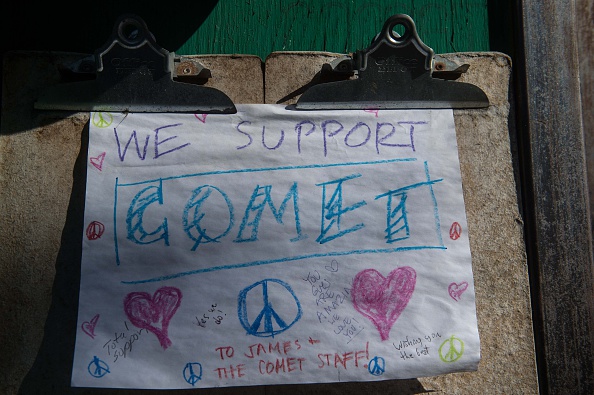 WE SUPPORT
COMET
Yes we
do!
YOU
ARE
AMAZING
WE
LOVE
YOU!
Total
support
Wishing you
the best
TO JAMES +
THE COMET STAFF!